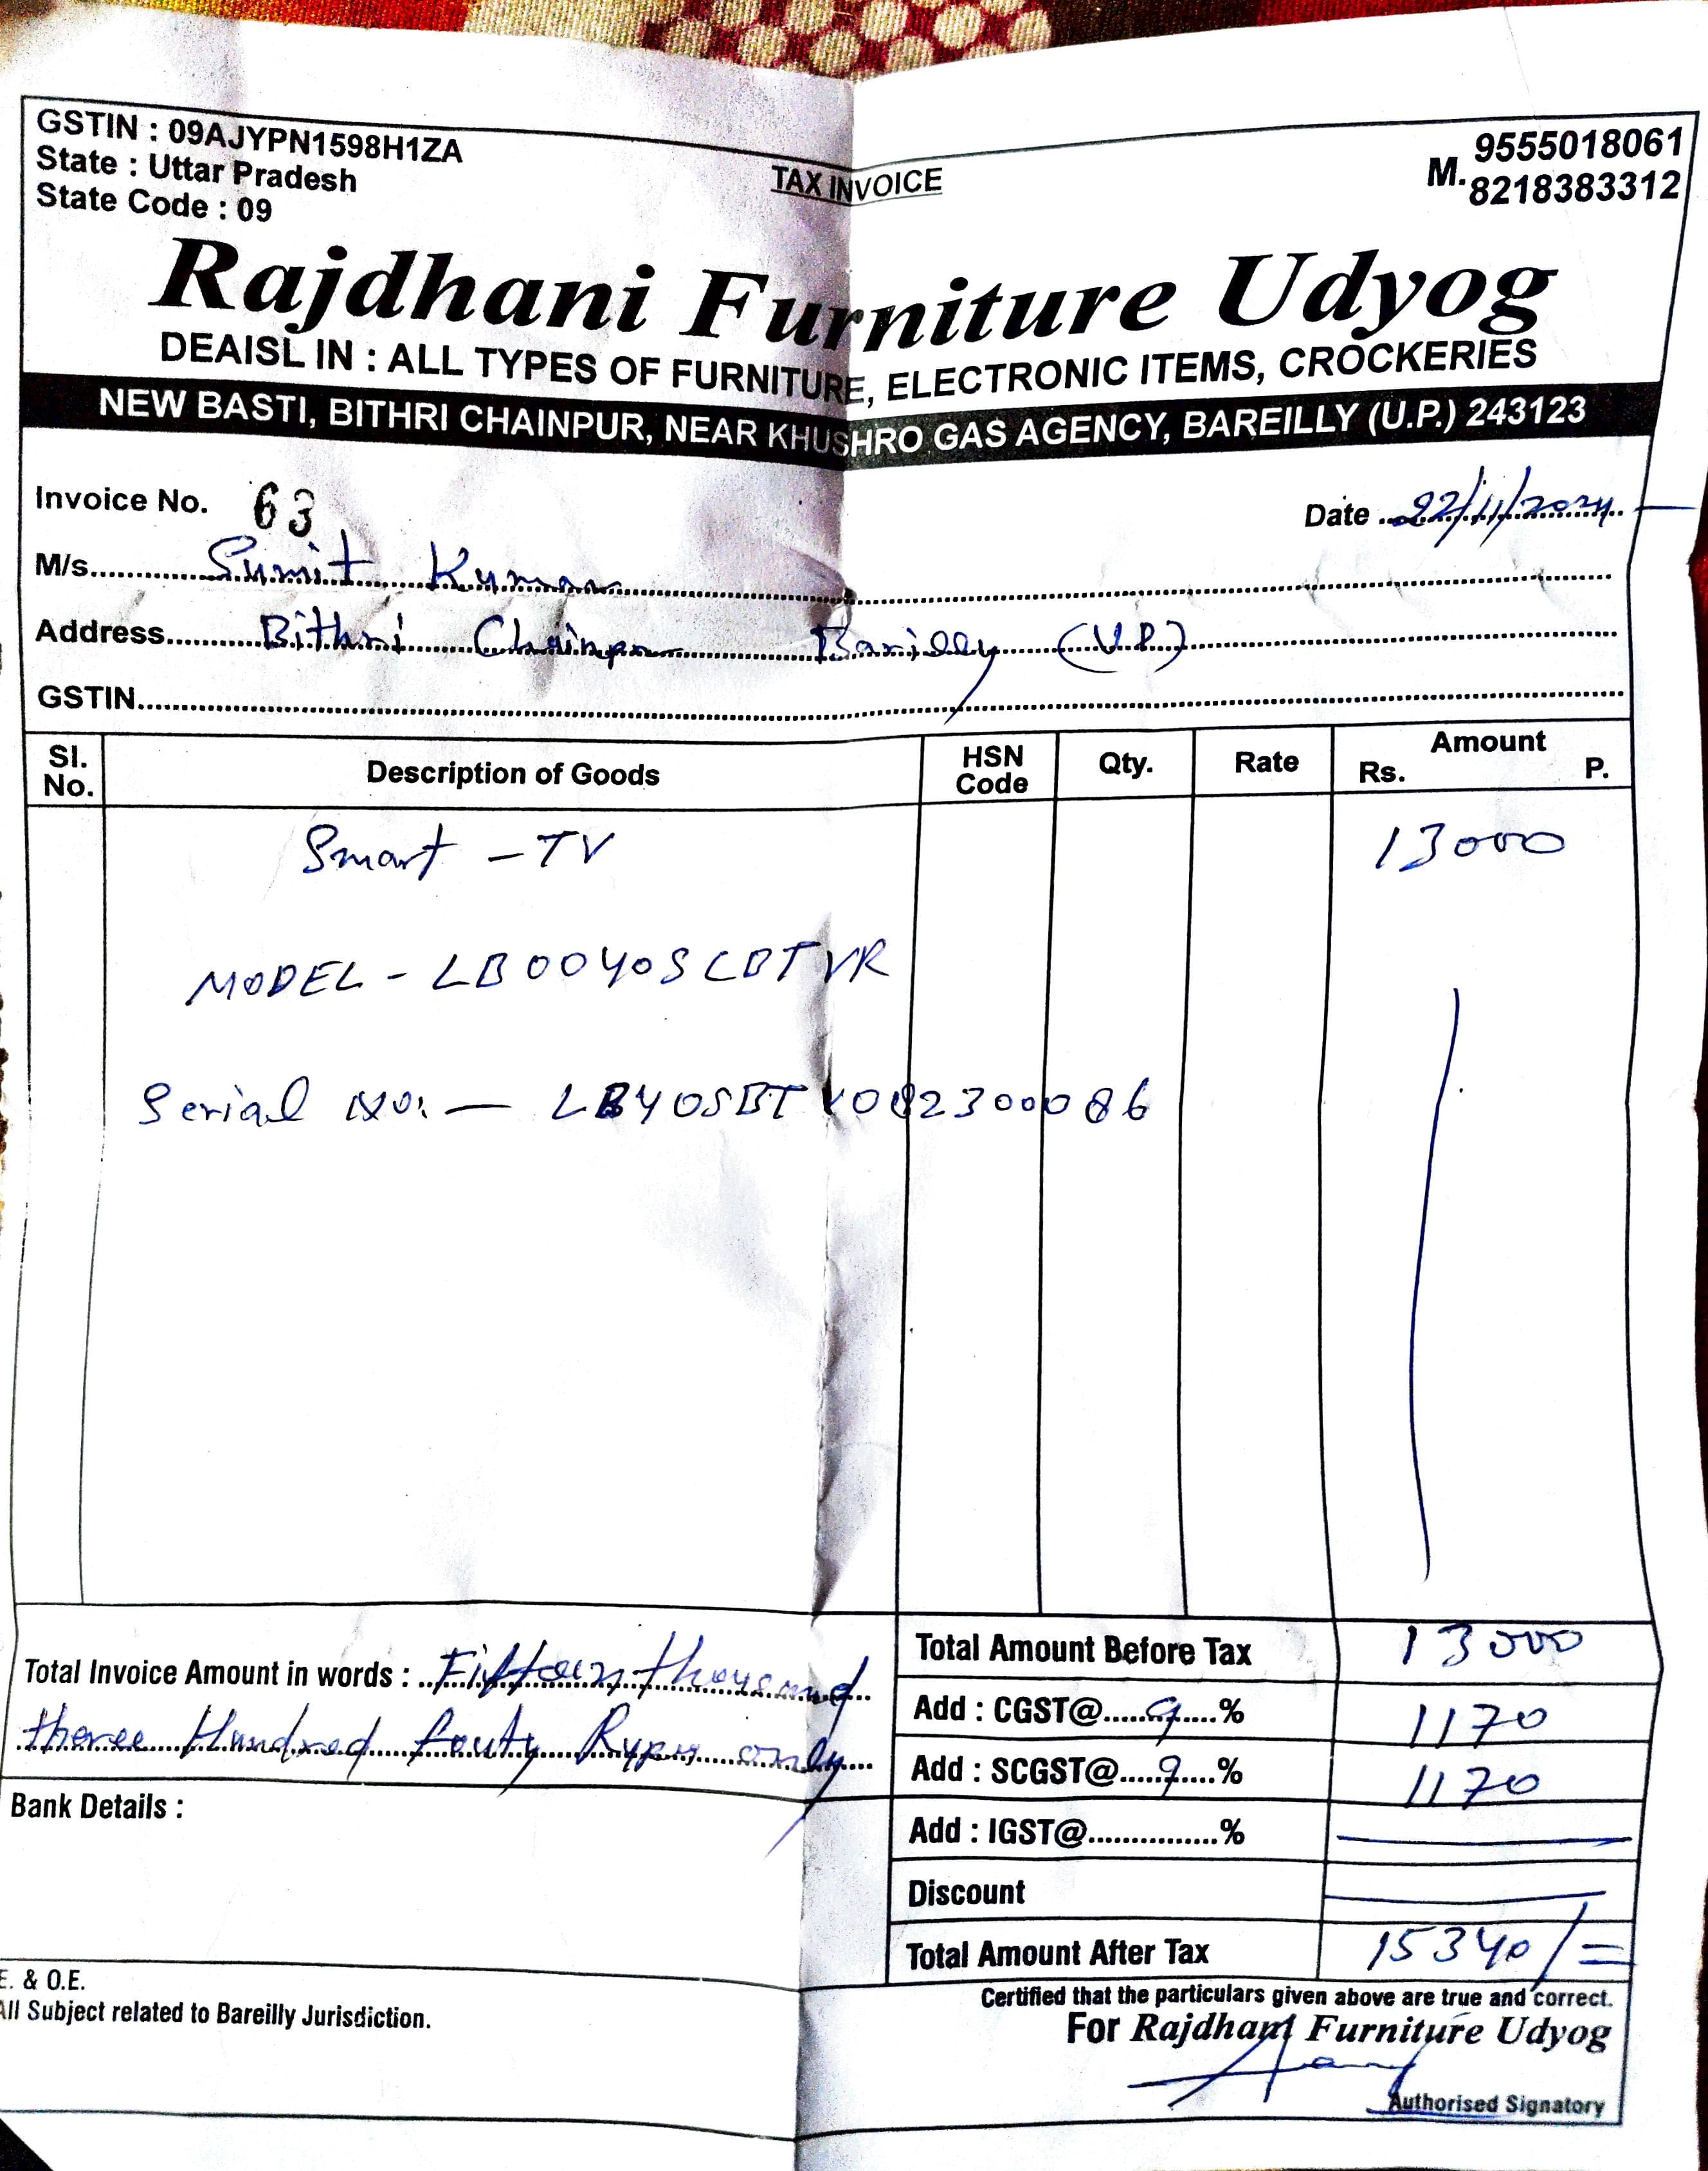 GSTIN : 09AJYPN1598H1ZA
State : Uttar Pradesh
State Code : 09
TAX INVOICE
M. 9555018061
8218383312
Rajdhani Furniture Udyog
DEAISL IN : ALL TYPES OF FURNITURE, ELECTRONIC ITEMS, CROCKERIES
NEW BASTI, BITHRI CHAINPUR, NEAR KHUSHRO GAS AGENCY, BAREILLY (U.P.) 243123
Invoice No. 63
Date 22/11/2024
M/s. Sumit Kumar
Address Bithri Chainpur Barilly (U.P.)
GSTIN
Sl. No. Description of Goods HSN Code Qty. Rate Amount Rs. P.
Smart - TV 13000
MODEL - LB0040SCBTVR
Serial No. —
Total Amount Before Tax 13000
Total Invoice Amount in words : Fifteen thousand
theree Hundred fouty Rypy only
Add : CGST@ 9 % 1170
Add : SCGST@ 9 % 1170
Bank Details :
Add : IGST@ %
Discount
Total Amount After Tax 15340/=
E. & O.E.
All Subject related to Bareilly Jurisdiction.
Certified that the particulars given above are true and correct.
For Rajdhani Furniture Udyog
Authorised Signatory